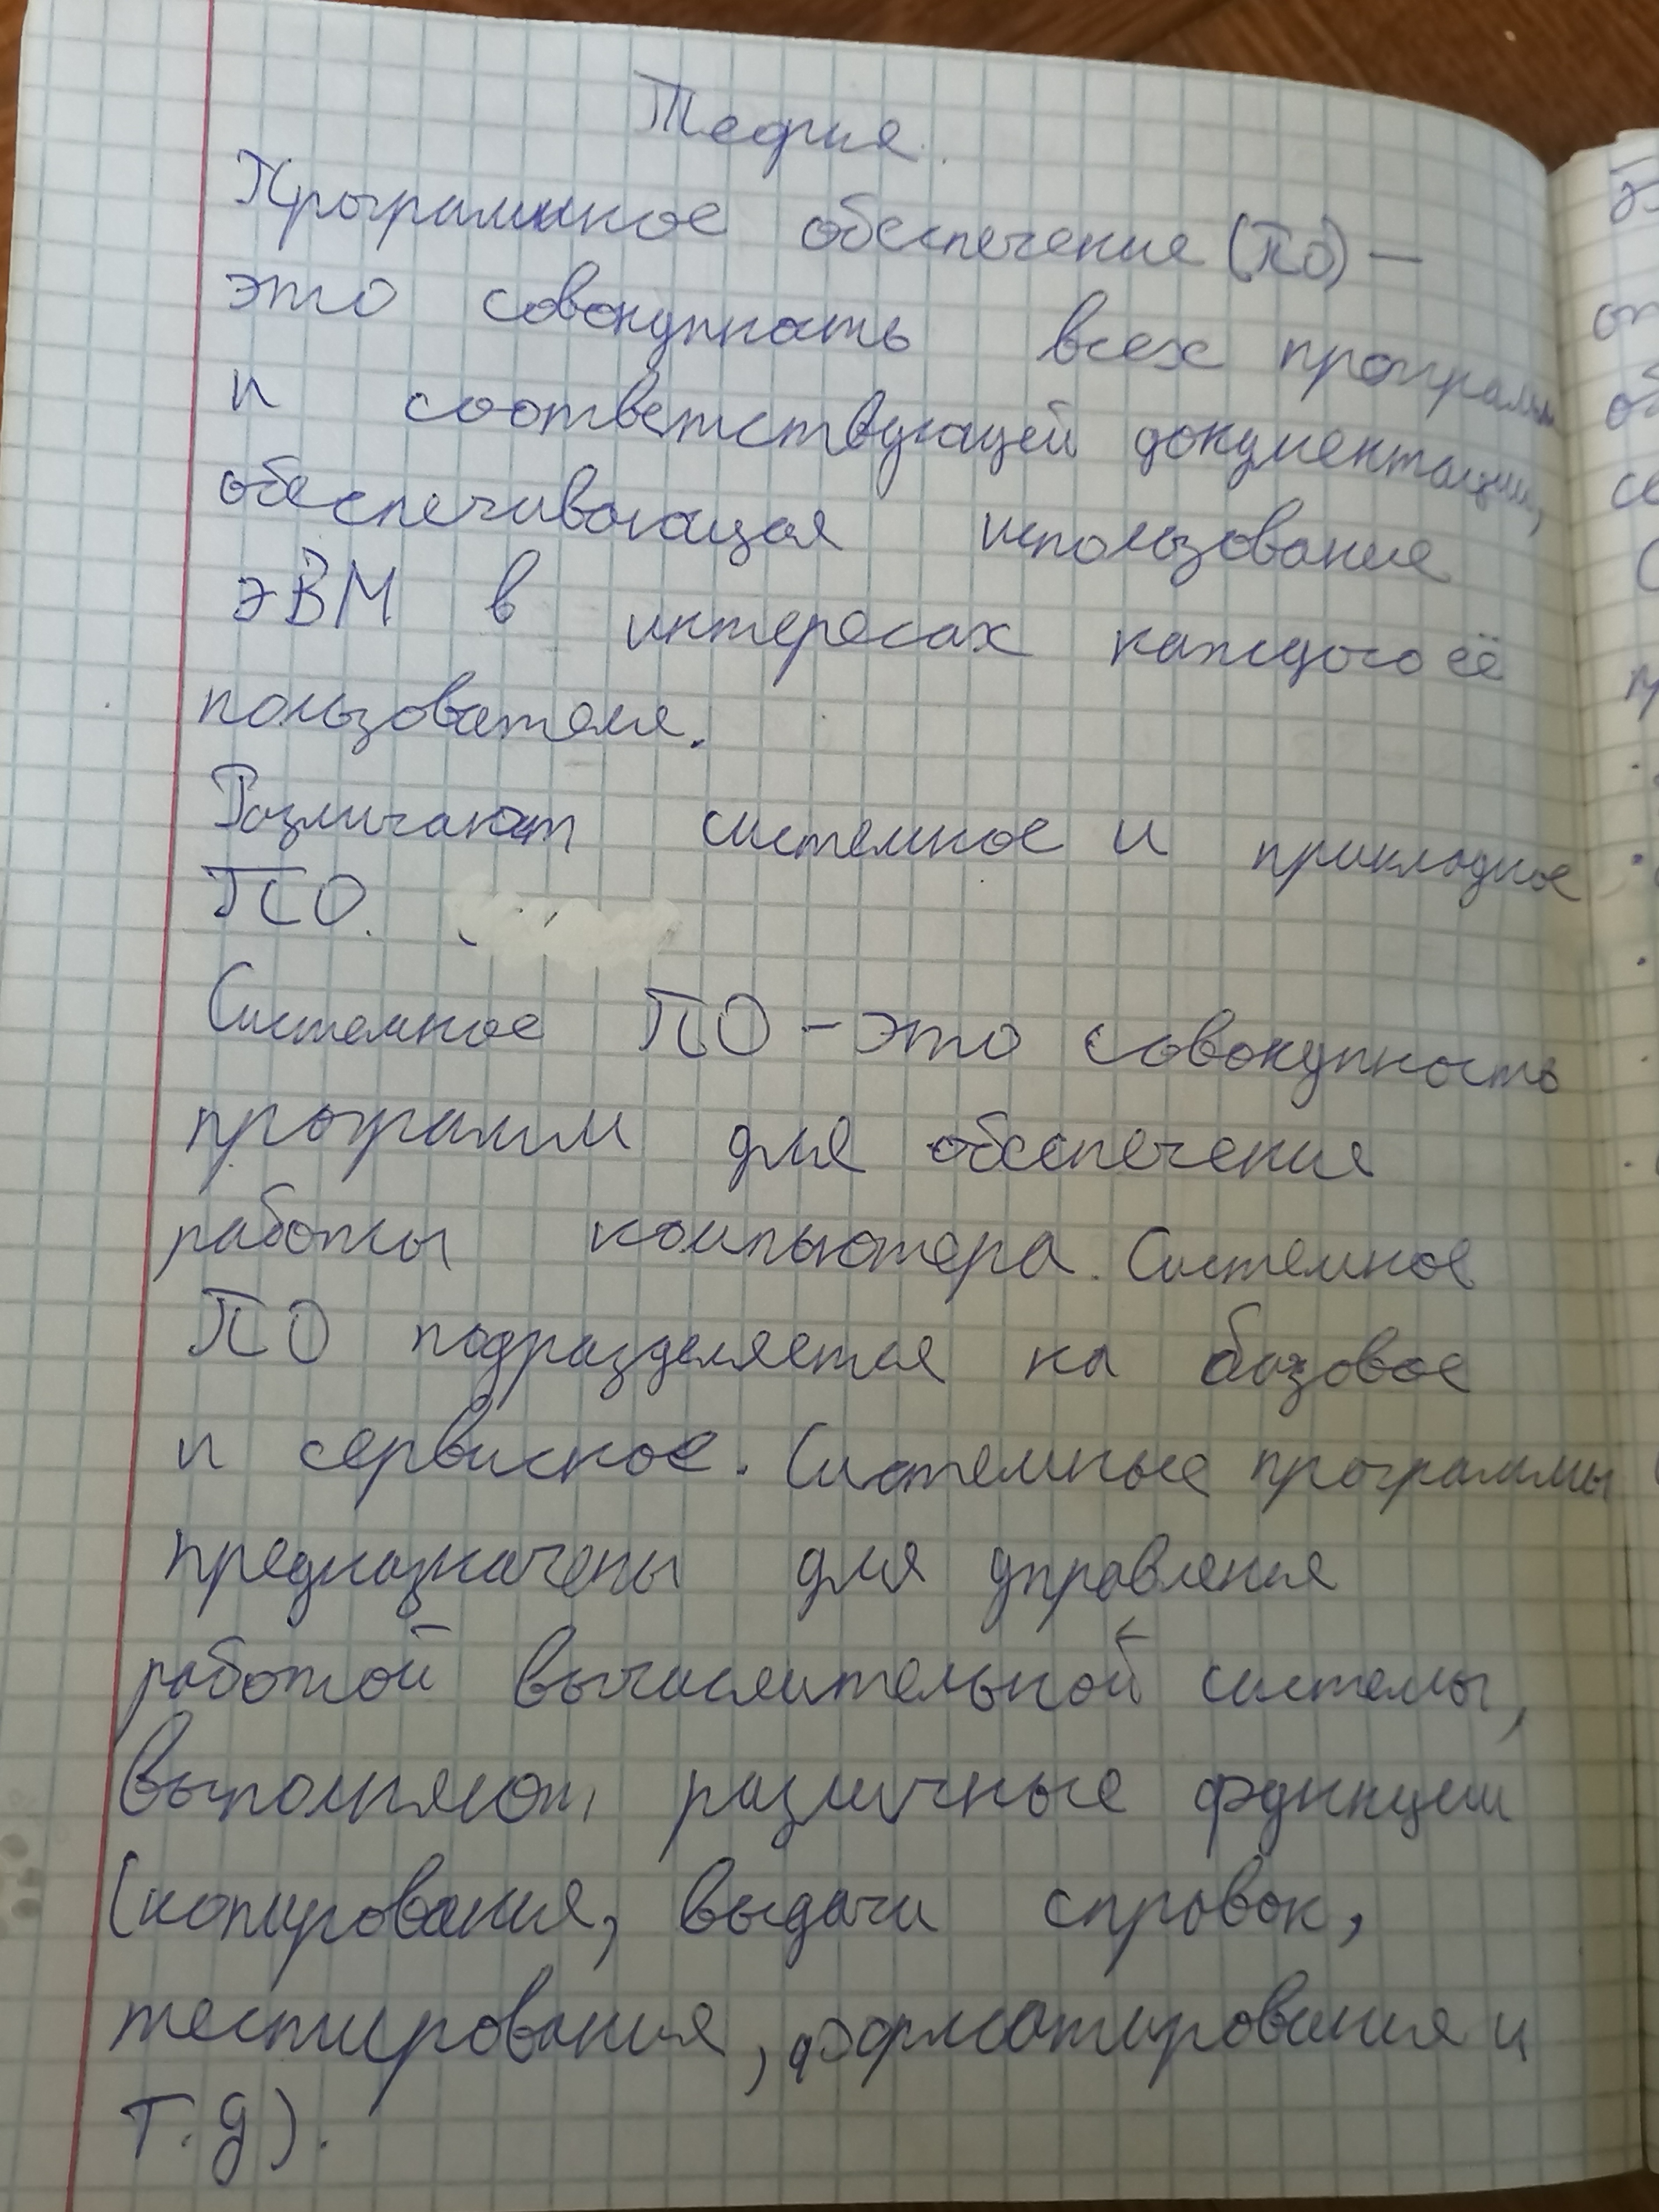 Теория.
Программное обеспечение (ПО) —
это совокупность всех программ
и соответствующей документации,
обеспечивающая использование
ЭВМ в интересах каждого её
пользователя.
Различают системное и прикладное
ПО.
Системное ПО – это совокупность
программ для обеспечения
работы компьютера. Системное
ПО подразделяется на базовое
и сервисное. Системные программы
предназначены для управления
работой вычислительной системы,
выполняют различные функции
(копирования, выдачи справок,
тестирования, форматирования и
т.д).